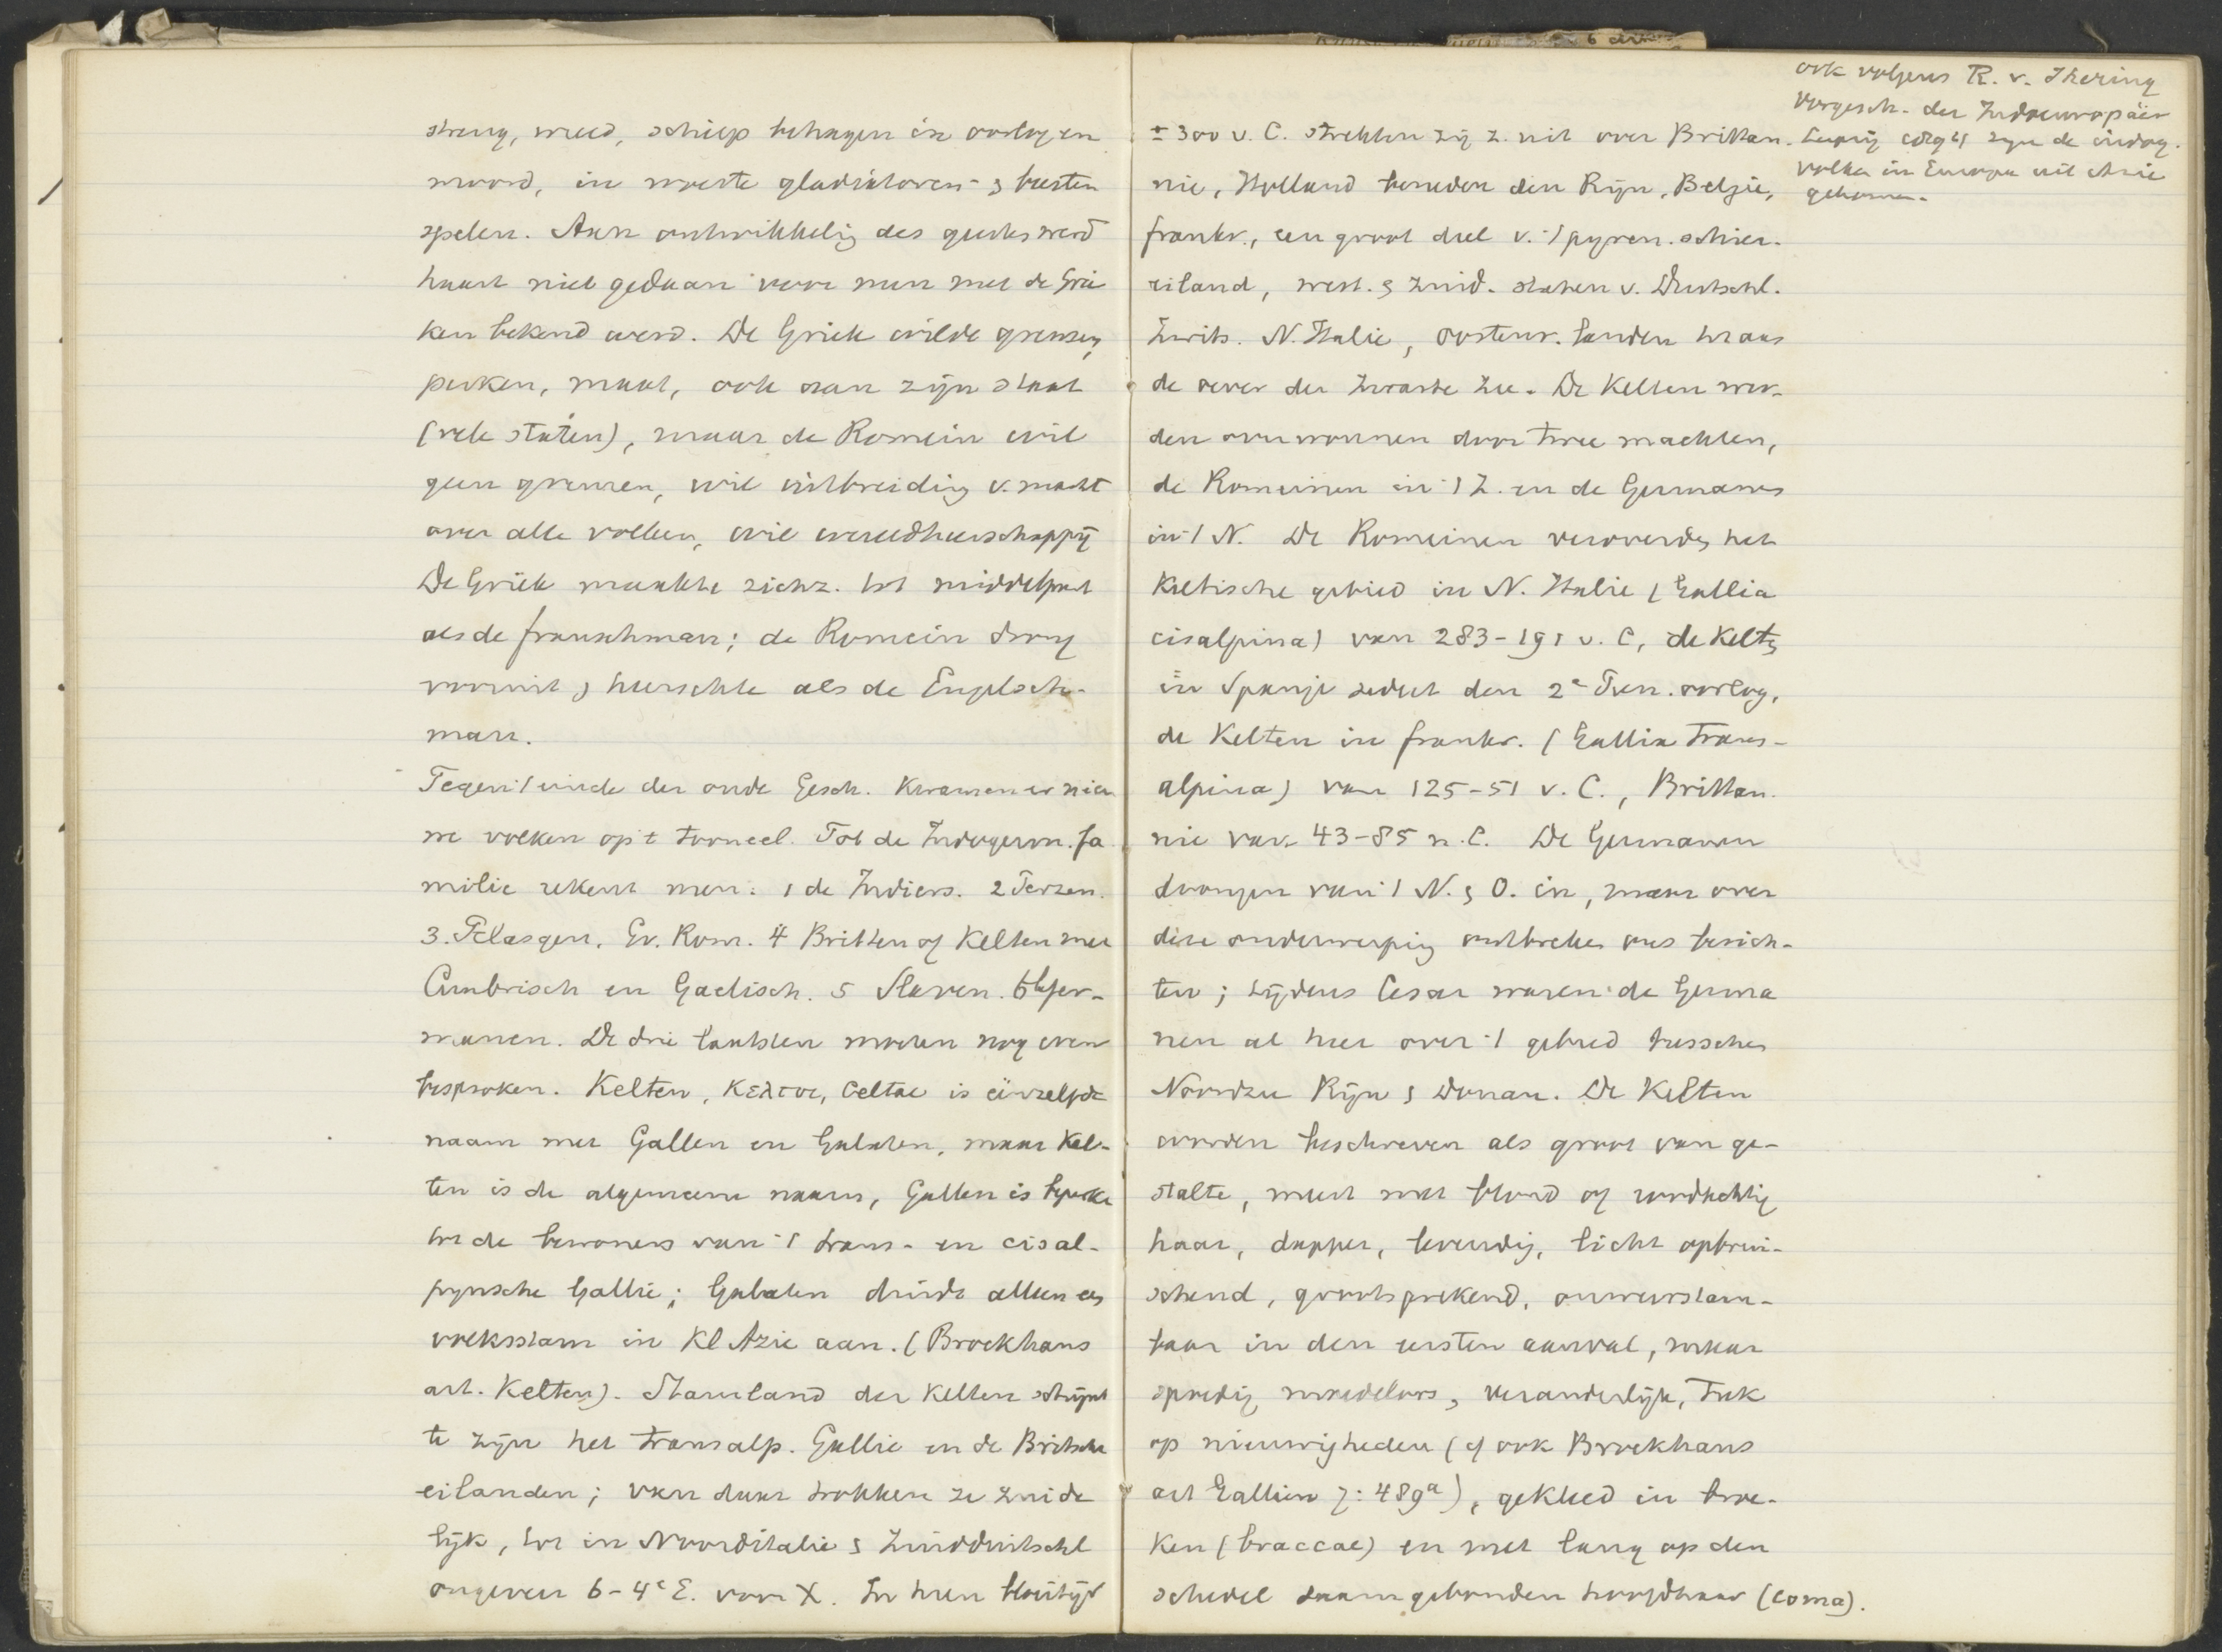 streng, wreed, schiep behagen in oorlog en
moord, in woeste gladiatoren- & beesten
spelen. Aan ontwikkeling des geestes werd
haast niet gedaan voor men met de Grie
ken bekend werd. De Griek wilde grenzen,
perken, maat, ook aan zijn staat
(vele staten), maar de Romein wil
geen grenzen, wil uitbreiding v. macht
over alle volken, wil wereldheerschappij
De Griek maakte zich z. tot middelpunt
als de franschman; de Romein drong
vooruit & heerschte als de Engelsch-
man.
Tegen 't einde der oude Gesch. kwamen er nieu
we volken op 't tooneel. Tot de Indogerm. fa
milie rekent men: 1 de Indiers. 2 Perzen.
3. Pelasgen, Gr. Rom. 4 Britten of Kelten met
Cimbrisch en Gaelisch. 5 Slaven. 6 Ger-
manen. De drie laatsten moeten nog even
besproken. Kelten, Κελτοι, Celtae is éénzelfde
naam met Gallen en Galaten, maar Kel-
ten is de algemeene naam, Gallen is beperkt
tot de bewoners van 't trans- en cisal-
pynsche Gallie; Galaten duidt alleen een
volksstam in Kl Azie aan. (Brockhaus
art. Kelten). Stamland der Kelten schijnt
te zijn het transalp. Gallie en de Britsche
eilanden; van daar trokken ze zuide
lijk, tot in Noorditalie & Zuidduitschl
ongeveer 6-4e E. voor X. In hun bloeitijd
ook volgens R. v. Ihering
Vorgesch. der Indoeuropäer
Leipzig 1894 zijn de indog.
volken in Europa uit Azie
gekomen.
± 300 v. C. strekten zij z. uit over Brittan-
nie, Holland beneden den Rijn, Belgie,
frankr., een groot deel v. 't pyren. schier-
eiland, west. & zuid. staten v. Duitschl.
Zwits. N. Italie, oostenr. landen tot aan
de oever der Zwarte Zee. De Kelten wer-
den overwonnen door twee machten,
de Romeinen in 't Z. en de Germanen
in 't N. De Romeinen veroverden het
Keltische gebied in N. Italie (Gallia
cisalpina) van 283-191 v. C, de Kelten
in Spanje sedert den 2e Pun. oorlog,
de Kelten in frankr. (Gallia Trans-
alpina) van 125-51 v. C., Brittan-
nie van 43-85 n. C. De Germanen
drongen van 't N. & O. in, maar over
deze onderwerping ontbreken ons berich-
ten; tijdens Cesar waren de Germa
nen al heer over 't gebied tusschen
Noordzee Rijn & Donau. De Kelten
worden beschreven als groot van ge-
stalte, meest met blond of roodachtig
haar, dapper, levendig, licht opbrui-
schend, grootsprekend, onweerstaan-
baar in den eersten aanval, maar
spoedig moedeloos, veranderlijk, tuk
op nieuwigheden (cf ook Brockhaus
art Gallien 7: 489a), gekleed in broe-
ken (braccae) en met lang op den
schedel saamgebonden hoofdhaar (coma).